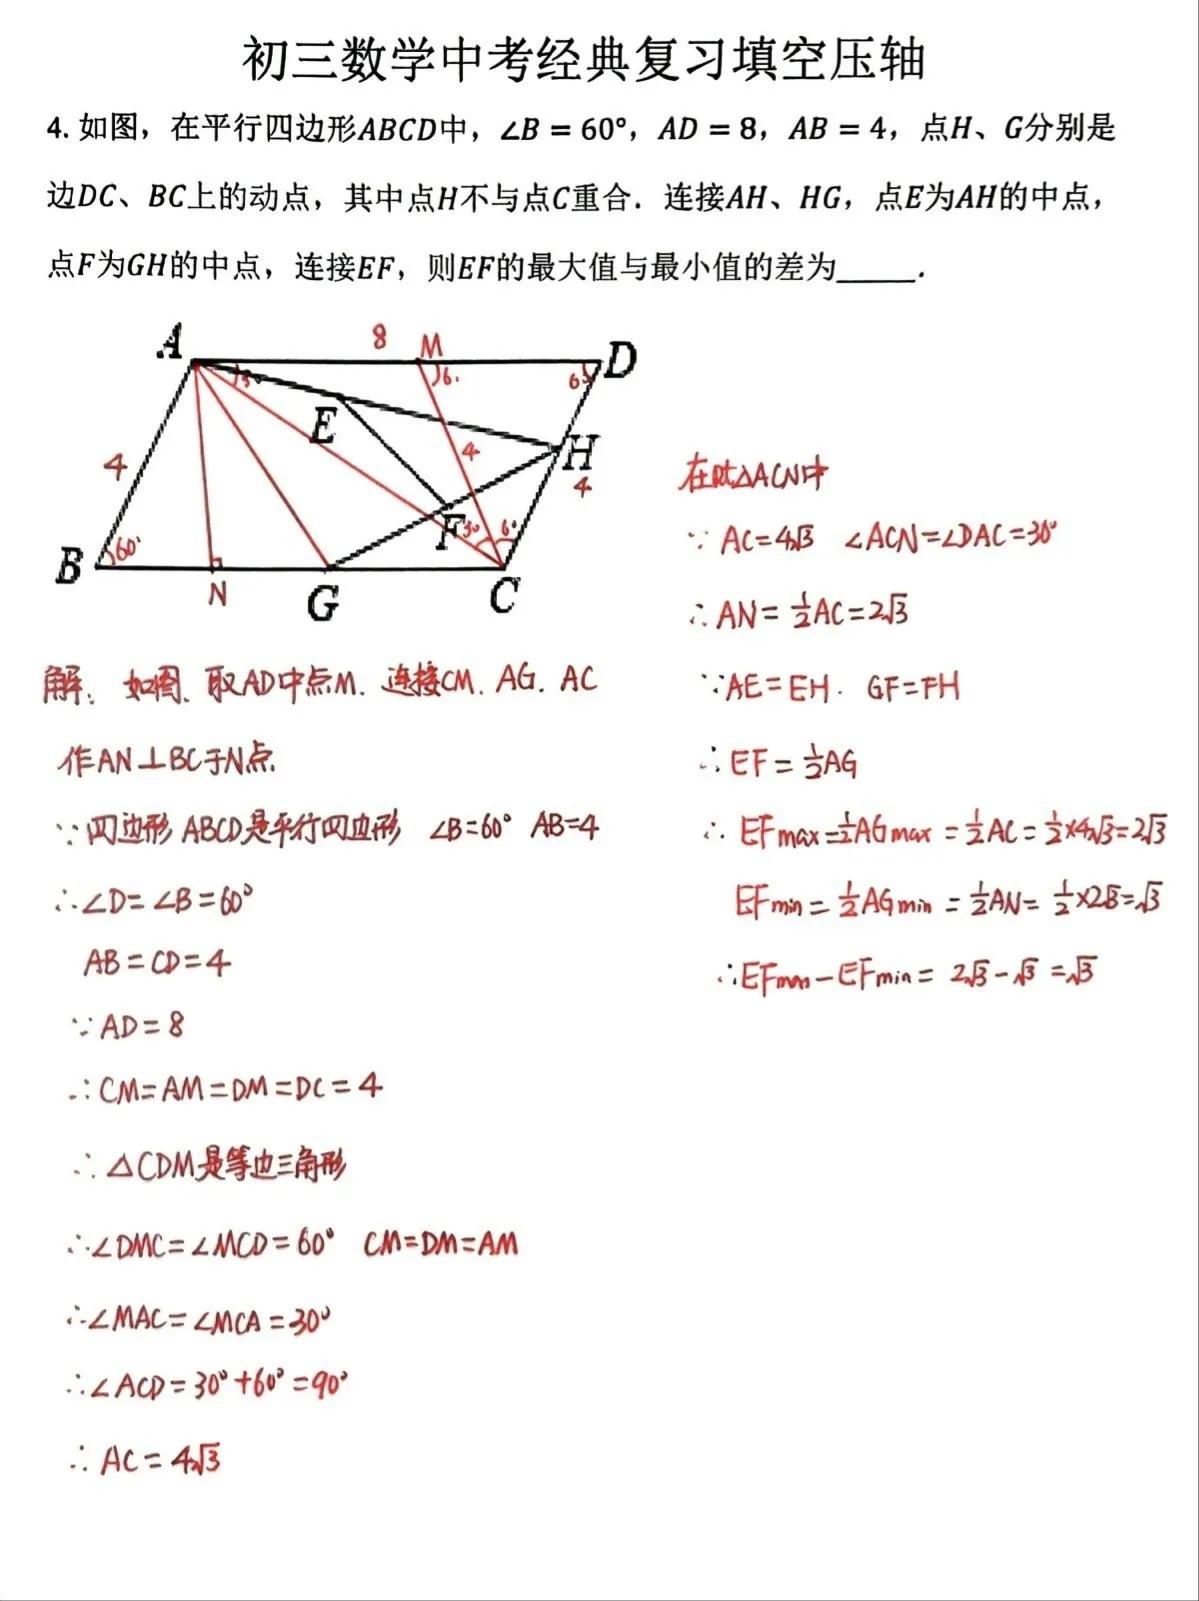 初三数学中考经典复习填空压轴
4. 如图，在平行四边形ABCD中，∠B = 60°，AD = 8，AB = 4，点H、G分别是
边DC、BC上的动点，其中点H不与点C重合．连接AH、HG，点E为AH的中点，
点F为GH的中点，连接EF，则EF的最大值与最小值的差为_____．
A 8 M D
E
4 4 H 4
F 30° 6°
B 60° N G C
解：如图，取AD中点M．连接CM．AG．AC
作AN⊥BC于N点
∵四边形ABCD是平行四边形 ∠B=60° AB=4
∴∠D=∠B=60°
AB=CD=4
∵AD=8
∴CM=AM=DM=DC=4
∴△CDM是等边三角形
∴∠DMC=∠MCD=60° CM=DM=AM
∴∠MAC=∠MCA=30°
∴∠ACD=30°+60°=90°
∴AC=4√3
在Rt△ACN中
∵AC=4√3 ∠ACN=∠DAC=30°
∴AN=½AC=2√3
∵AE=EH． GF=FH
∴EF=½AG
∴EFmax=½AGmax=½AC=½×4√3=2√3
EFmin=½AGmin=½AN=½×2√3=√3
∴EFmax-EFmin=2√3-√3=√3